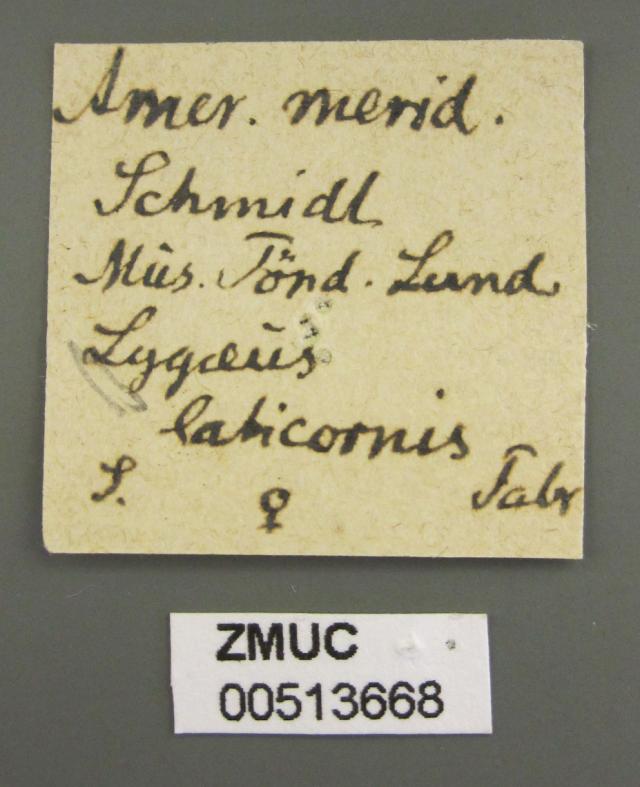 Amer. merid.
Schmidt
Mus. Tönd. Lund
Lygæus
laticornis
S. ♀ Fabr
ZMUC
00513668